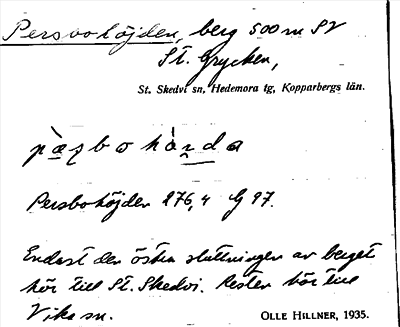 Persbohöjden, berg 500 m SV
St. Grycken,
St. Skedvi sn, Hedemora tg, Kopparbergs län.
Persbohöjden 276,4 G 97.
Endast den östra sluttningen av berget
hör till St. Skedvi. Resten hör till
Vika sn.
OLLE HILLNER, 1935.